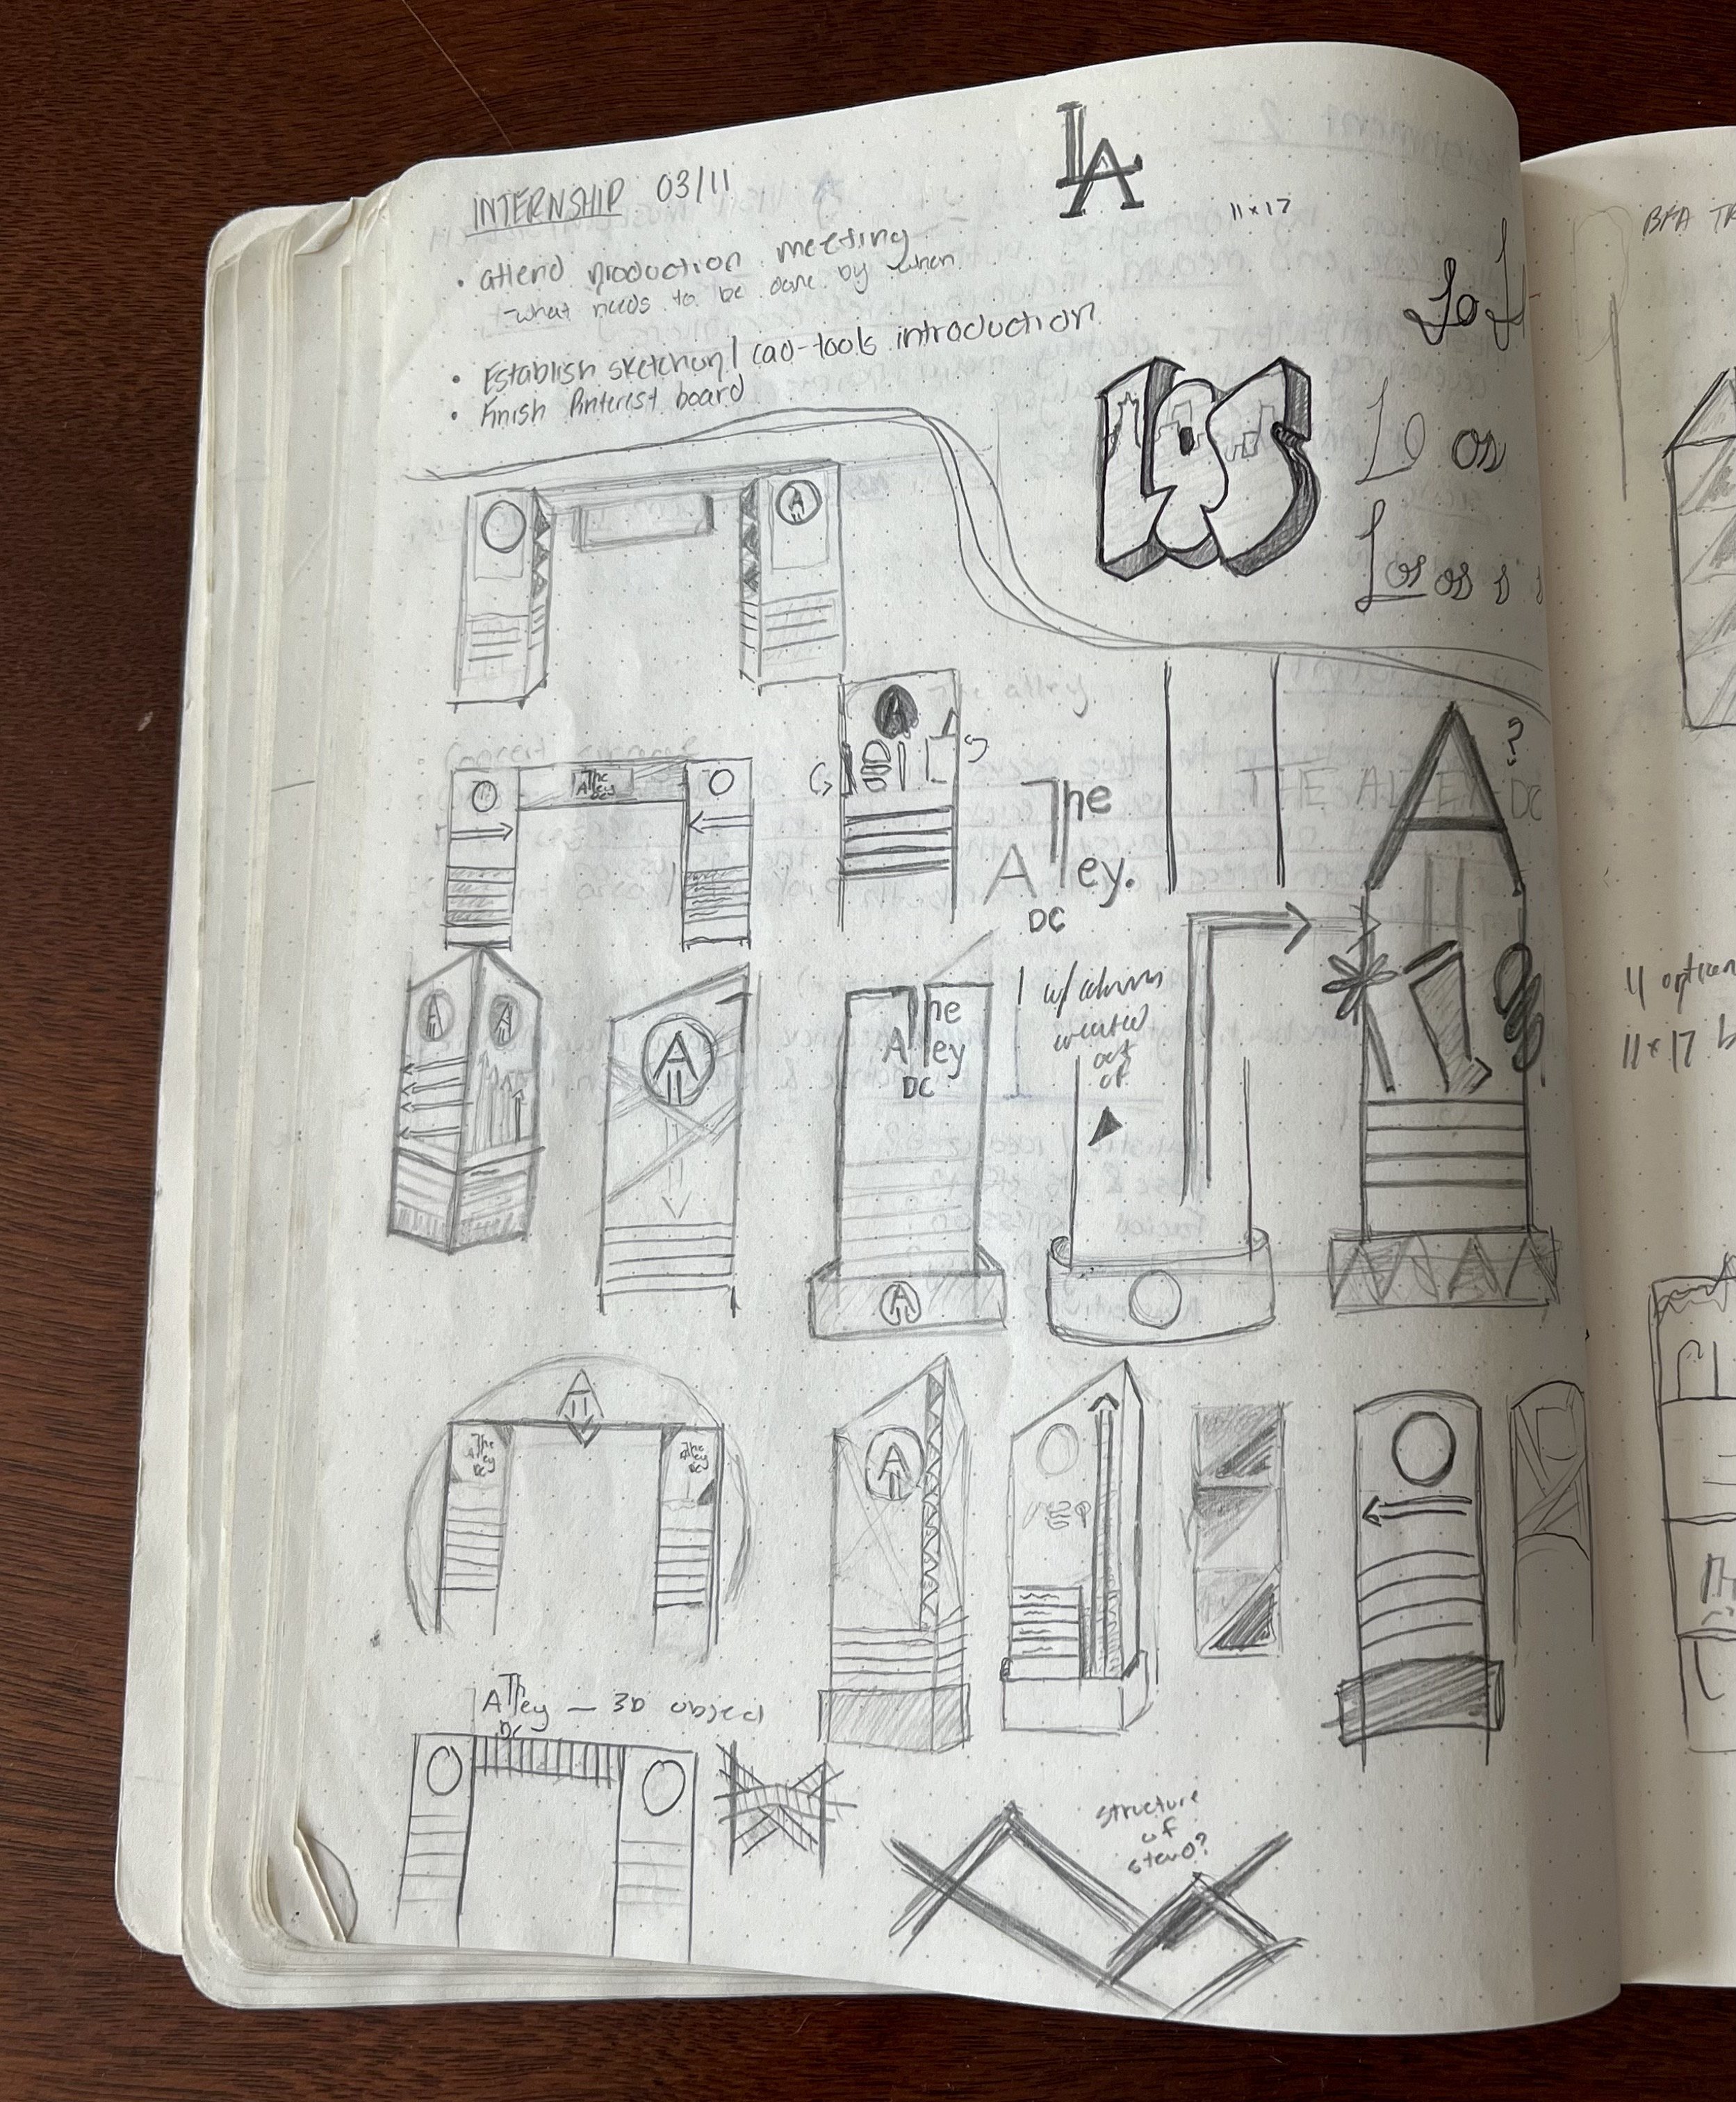 INTERNSHIP 03/11
• attend production meeting
-what needs to be done by when
• Establish sketchup/cad-tools introduction
• Finish Pinterest board
LA
11x17
BFA
Lo
LOS
Lo os
Los os s
A
A
G
S
The
Alley
DC
The
Alley.
DC
THE ALLEY DC
?
A
A
A
A
The
Alley
DC
A
1 w/ columns
created
out
of
11 option
11x17 b
A
The
Alley
DC
The
Alley
DC
A
The
Alley — 3D object
DC
structure
of
stand?